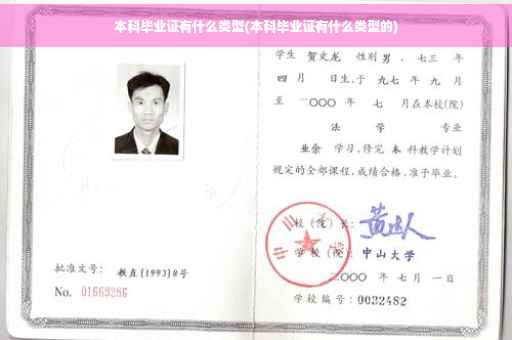 本科毕业证有什么类型(本科毕业证有什么类型的)
学生 贺文龙 性别 男 、七三 年
四 月 日生,于 九七 年 九 月
至 二〇〇〇 年 七 月在本校(院)
法 学 专业
业余 学习,修完 本 科教学计划
规定的全部课程,成绩合格,准予毕业。
校(院)长:
学 校(院): 中山大学
二〇〇〇 年 七 月 一 日
批准文号: 教直[1993]8号
No. 01669286
学校编号: 0032482